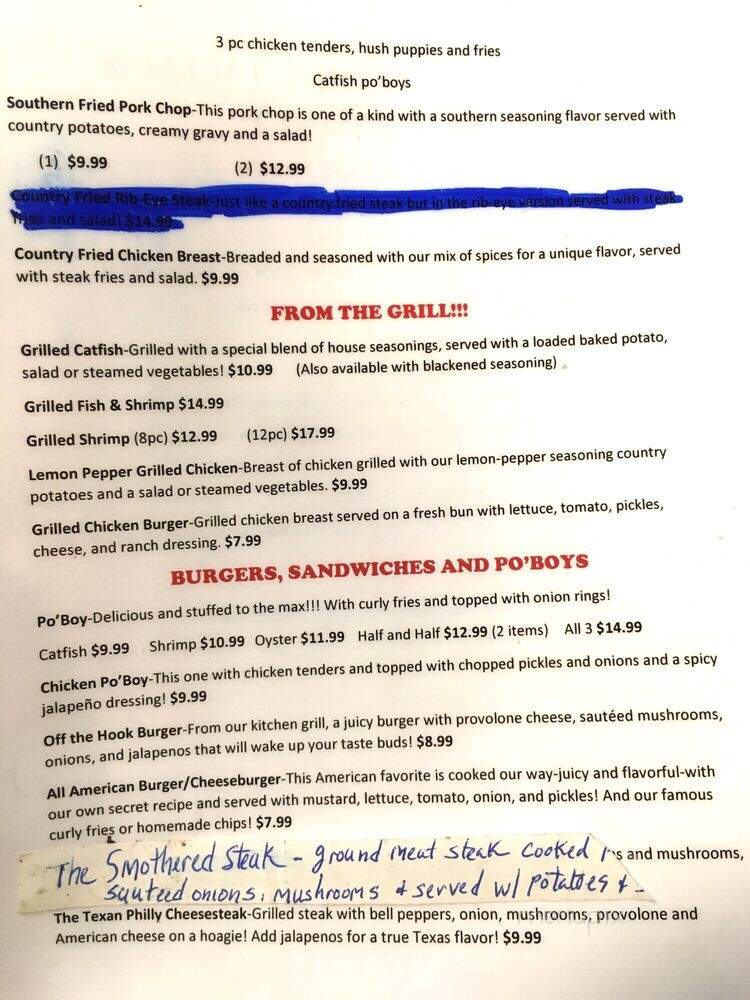 3 pc chicken tenders, hush puppies and fries
Catfish po'boys
Southern Fried Pork Chop-This pork chop is one of a kind with a southern seasoning flavor served with
country potatoes, creamy gravy and a salad!
(1) $9.99 (2) $12.99
Country Fried Rib-Eye Steak-Just like a country fried steak but in the rib-eye version served with steak
fries and salad! $14.99
Country Fried Chicken Breast-Breaded and seasoned with our mix of spices for a unique flavor, served
with steak fries and salad. $9.99
FROM THE GRILL!!!
Grilled Catfish-Grilled with a special blend of house seasonings, served with a loaded baked potato,
salad or steamed vegetables! $10.99 (Also available with blackened seasoning)
Grilled Fish & Shrimp $14.99
Grilled Shrimp (8pc) $12.99 (12pc) $17.99
Lemon Pepper Grilled Chicken-Breast of chicken grilled with our lemon-pepper seasoning country
potatoes and a salad or steamed vegetables. $9.99
Grilled Chicken Burger-Grilled chicken breast served on a fresh bun with lettuce, tomato, pickles,
cheese, and ranch dressing. $7.99
BURGERS, SANDWICHES AND PO'BOYS
Po'Boy-Delicious and stuffed to the max!!! With curly fries and topped with onion rings!
Catfish $9.99 Shrimp $10.99 Oyster $11.99 Half and Half $12.99 (2 items) All 3 $14.99
Chicken Po'Boy-This one with chicken tenders and topped with chopped pickles and onions and a spicy
jalapeño dressing! $9.99
Off the Hook Burger-From our kitchen grill, a juicy burger with provolone cheese, sautéed mushrooms,
onions, and jalapenos that will wake up your taste buds! $8.99
All American Burger/Cheeseburger-This American favorite is cooked our way-juicy and flavorful-with
our own secret recipe and served with mustard, lettuce, tomato, onion, and pickles! And our famous
curly fries or homemade chips! $7.99
The Smothered Steak - ground meat steak cooked
and mushrooms,
sauteed onions, mushrooms & served w/ potatoes &
The Texan Philly Cheesesteak-Grilled steak with bell peppers, onion, mushrooms, provolone and
American cheese on a hoagie! Add jalapenos for a true Texas flavor! $9.99